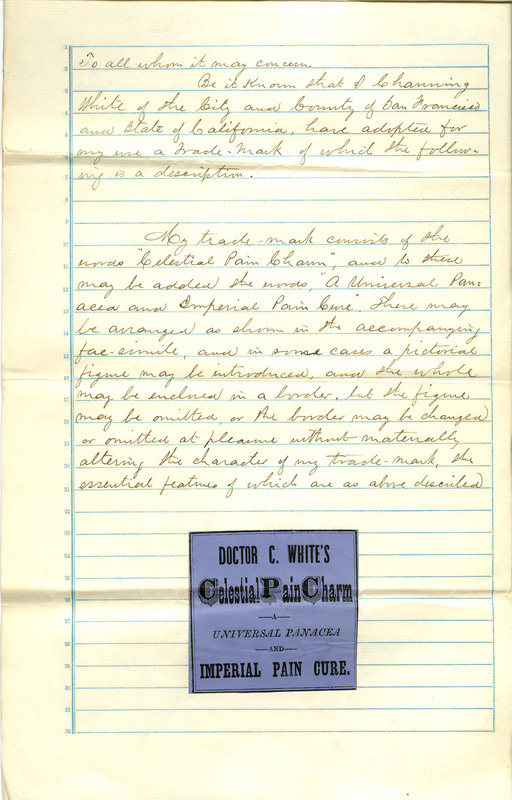 To all whom it may concern.
Be it Known that I Channing
White of the City and County of San Francisco
and State of California, have adopted for
my use a Trade-Mark of which the follow-
ing is a description.
My trade-mark consists of the
words "Celestial Pain Charm", and to these
may be added the words, "A Universal Pan-
acea and Imperial Pain Cure". These may
be arranged as shown in the accompanying
fac-simile, and in some cases a pictorial
figure may be introduced, and the whole
may be enclosed in a border, but the figure
may be omitted or the border may be changed
or omitted at pleasure without materially
altering the character of my trade-mark, the
essential features of which are as above described
DOCTOR C. WHITE'S
Celestial Pain Charm
—A—
UNIVERSAL PANACEA
—AND—
IMPERIAL PAIN CURE.